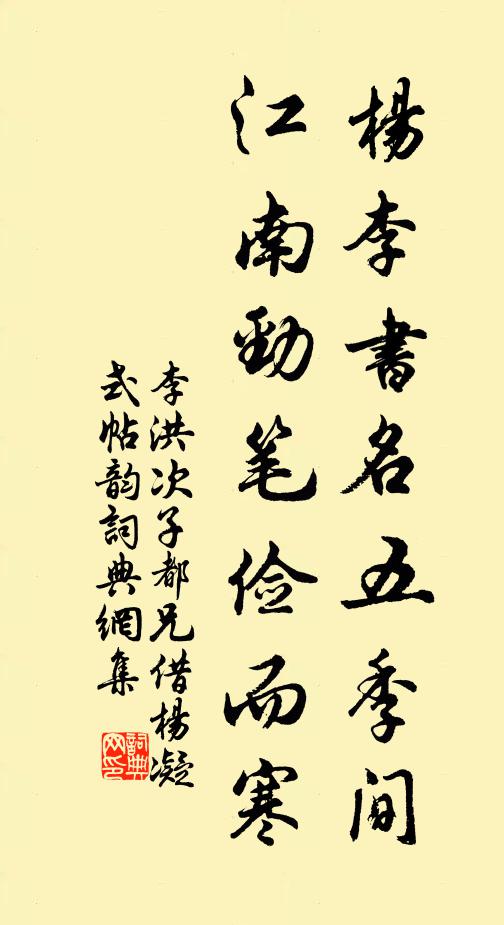 楊李書名五季间
江南勁笔俭而寒
李洪次子都兄借楊凝
式帖韵詞典網集
詞典网印